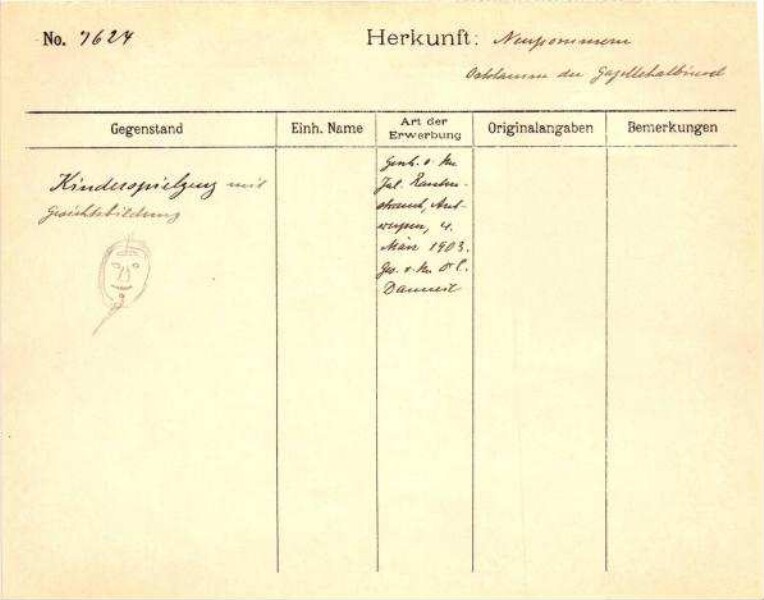 No. 7624 Herkunft: Neupommern
der Gazellehalbinsel
Gegenstand Einh. Name Art der Erwerbung Originalangaben Bemerkungen
Kinderspielzeug mit
Gesichtsbildung
Gesch. v. Hn
Jul. Rauten-
strauch, Ant-
werpen, 4.
März 1903.
Ges. v. Hn
Dannert